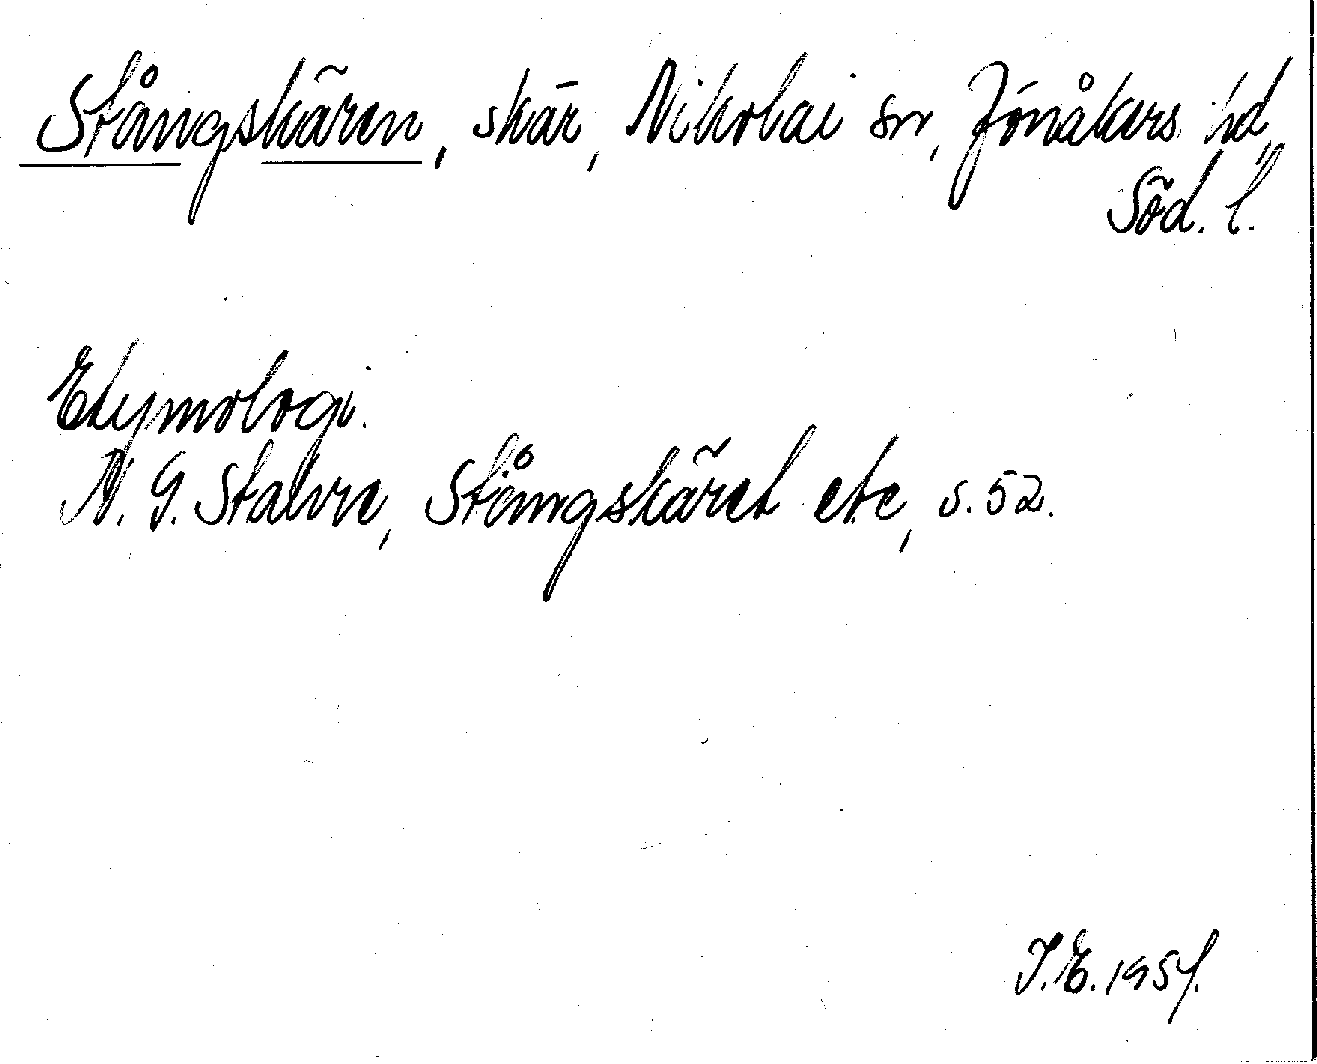 Stångskären, skär, Nikolai sn, Jönåkers hd,
Söd. l.
Etymologi.
N. G. Stalvre, Stångskäret etc, s. 52.
I.E. 1957.